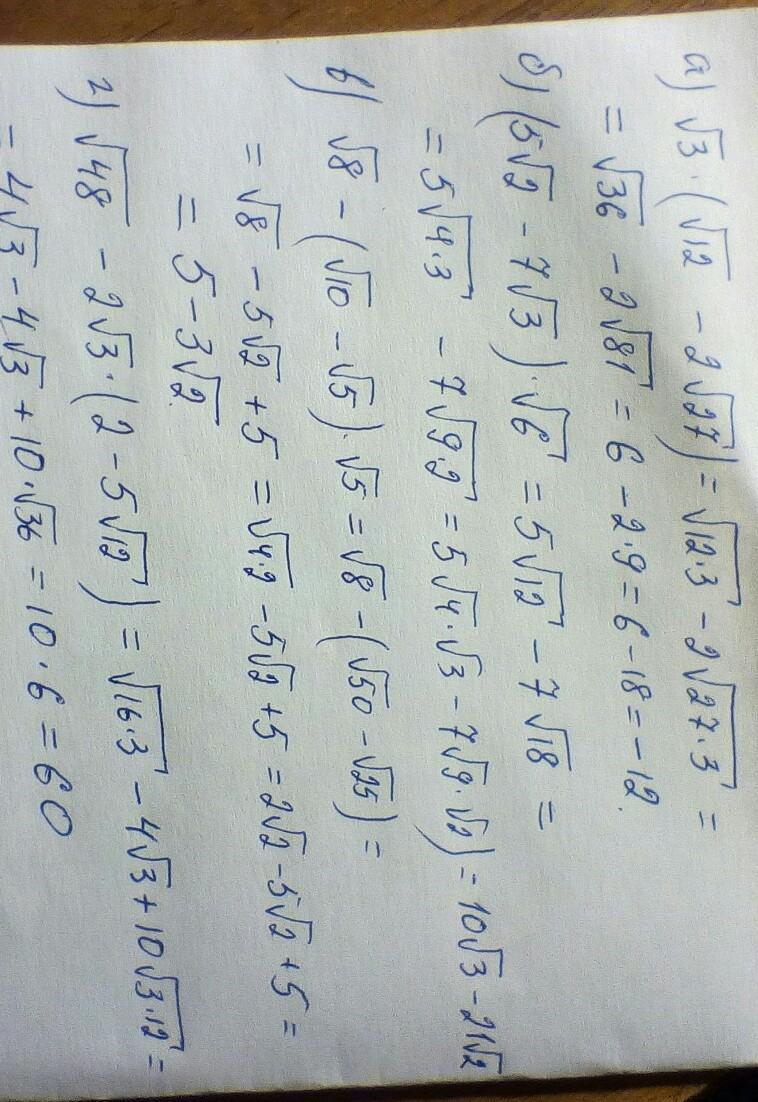 а) √3·(√12 - 2√27) = √12·3 - 2√27·3 =
= √36 - 2√81 = 6 - 2·9 = 6 - 18 = -12.
б) (5√2 - 7√3)·√6 = 5√12 - 7√18 =
= 5√4·3 - 7√9·2 = 5√4·√3 - 7√9·√2) = 10√3 - 21√2
в) √8 - (√10 - √5)·√5 = √8 - (√50 - √25) =
= √8 - 5√2 + 5 = √4·2 - 5√2 + 5 = 2√2 - 5√2 + 5 =
= 5 - 3√2.
г) √48 - 2√3·(2 - 5√12) = √16·3 - 4√3 + 10√3·12 =
= 4√3 - 4√3 + 10·√36 = 10·6 = 60